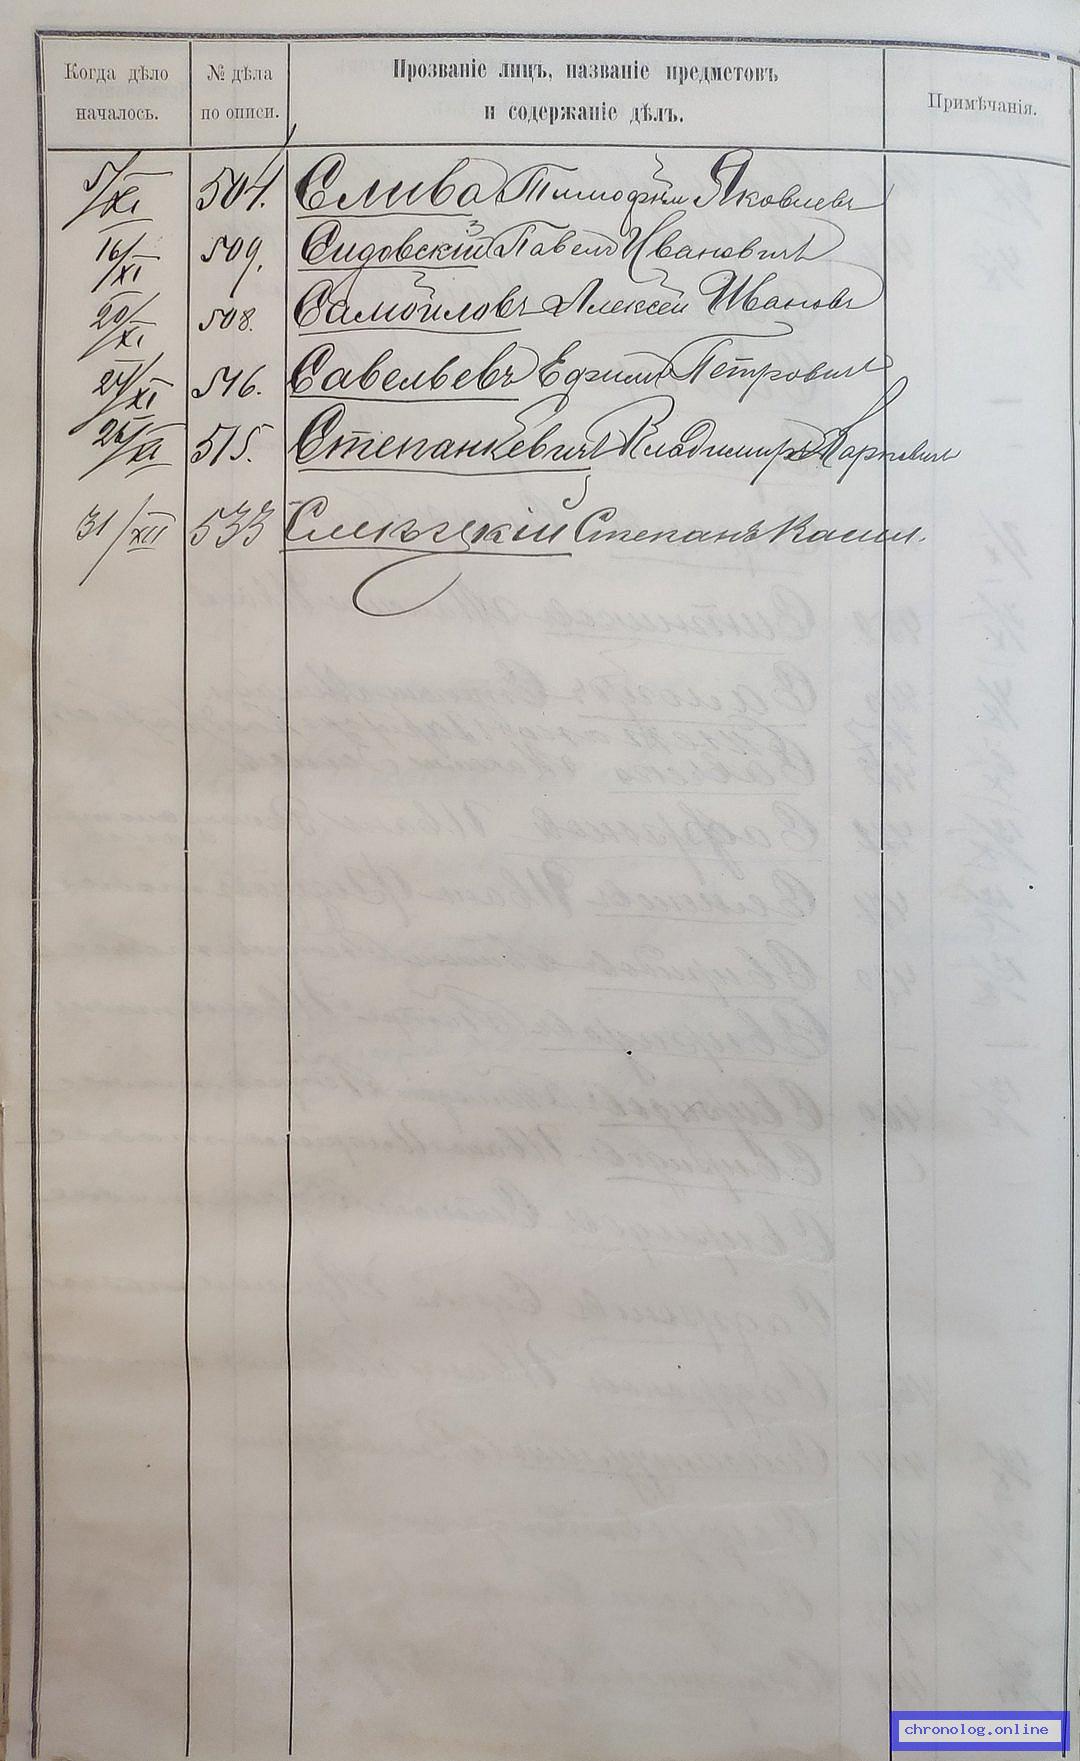 Когда дѣло началось.
№ дѣла по описи.
Прозваніе лицъ, названіе предметовъ и содержаніе дѣлъ.
Примѣчанія.
5/XI 504. Слива Тимофѣй Яковлевъ
16/XI 509. Сидовскій Павелъ Ивановичъ
20/XI 508. Самойловъ Алексѣй Ивановъ
24/XI 516. Савельевъ Ефимъ Петровичъ
25/XI 515. Степанкевичъ Владимиръ
31/XII 533 Степанъ
chronolog.online